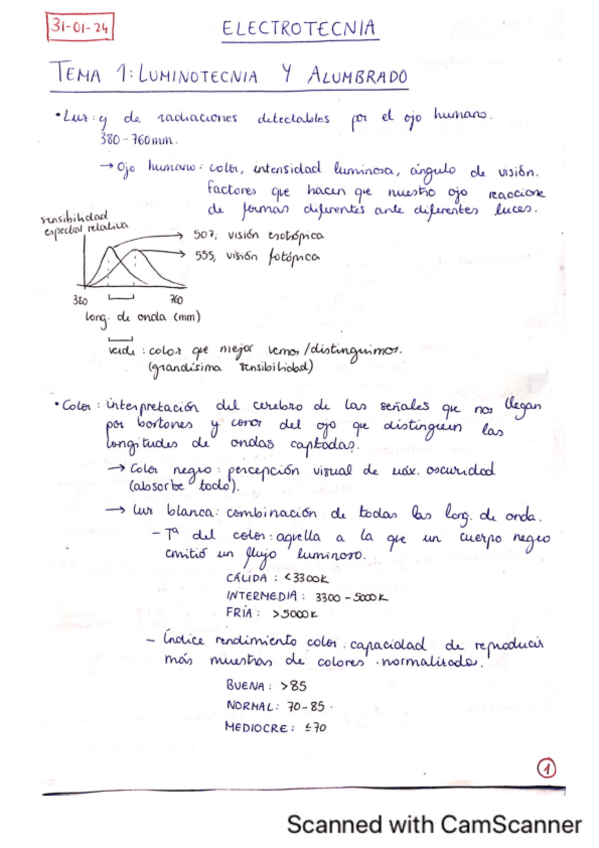 31-01-24
ELECTROTECNIA
TEMA 1: LUMINOTECNIA Y ALUMBRADO
• Luz: y de radiaciones detectables por el ojo humano.
380-760mm.
→ Ojo humano: color, intensidad luminosa, ángulo de visión.
Factores que hacen que nuestro ojo reaccione
de formas diferentes ante diferentes luces.
sensibilidad
espectral relativa
507, visión esotrópica
555, visión fotópica
380 760
long. de onda (mm)
verde: color que mejor vemos/distinguimos.
(grandísima sensibilidad)
• Color: interpretación del cerebro de las señales que nos llegan
por bastones y conos del ojo que distinguen las
longitudes de ondas captadas.
→ Color negro: percepción visual de máx. oscuridad
(absorbe todo).
→ Luz blanca: combinación de todas las long. de onda.
- Tª del color: aquella a la que un cuerpo negro
emitió un flujo luminoso.
CÁLIDA: <3300K
INTERMEDIA: 3300-5000K
FRÍA: >5000K
- Índice rendimiento color: capacidad de reproducir
más muestras de colores normalizados.
BUENA: >85
NORMAL: 70-85.
MEDIOCRE: ≤70
1
Scanned with CamScanner